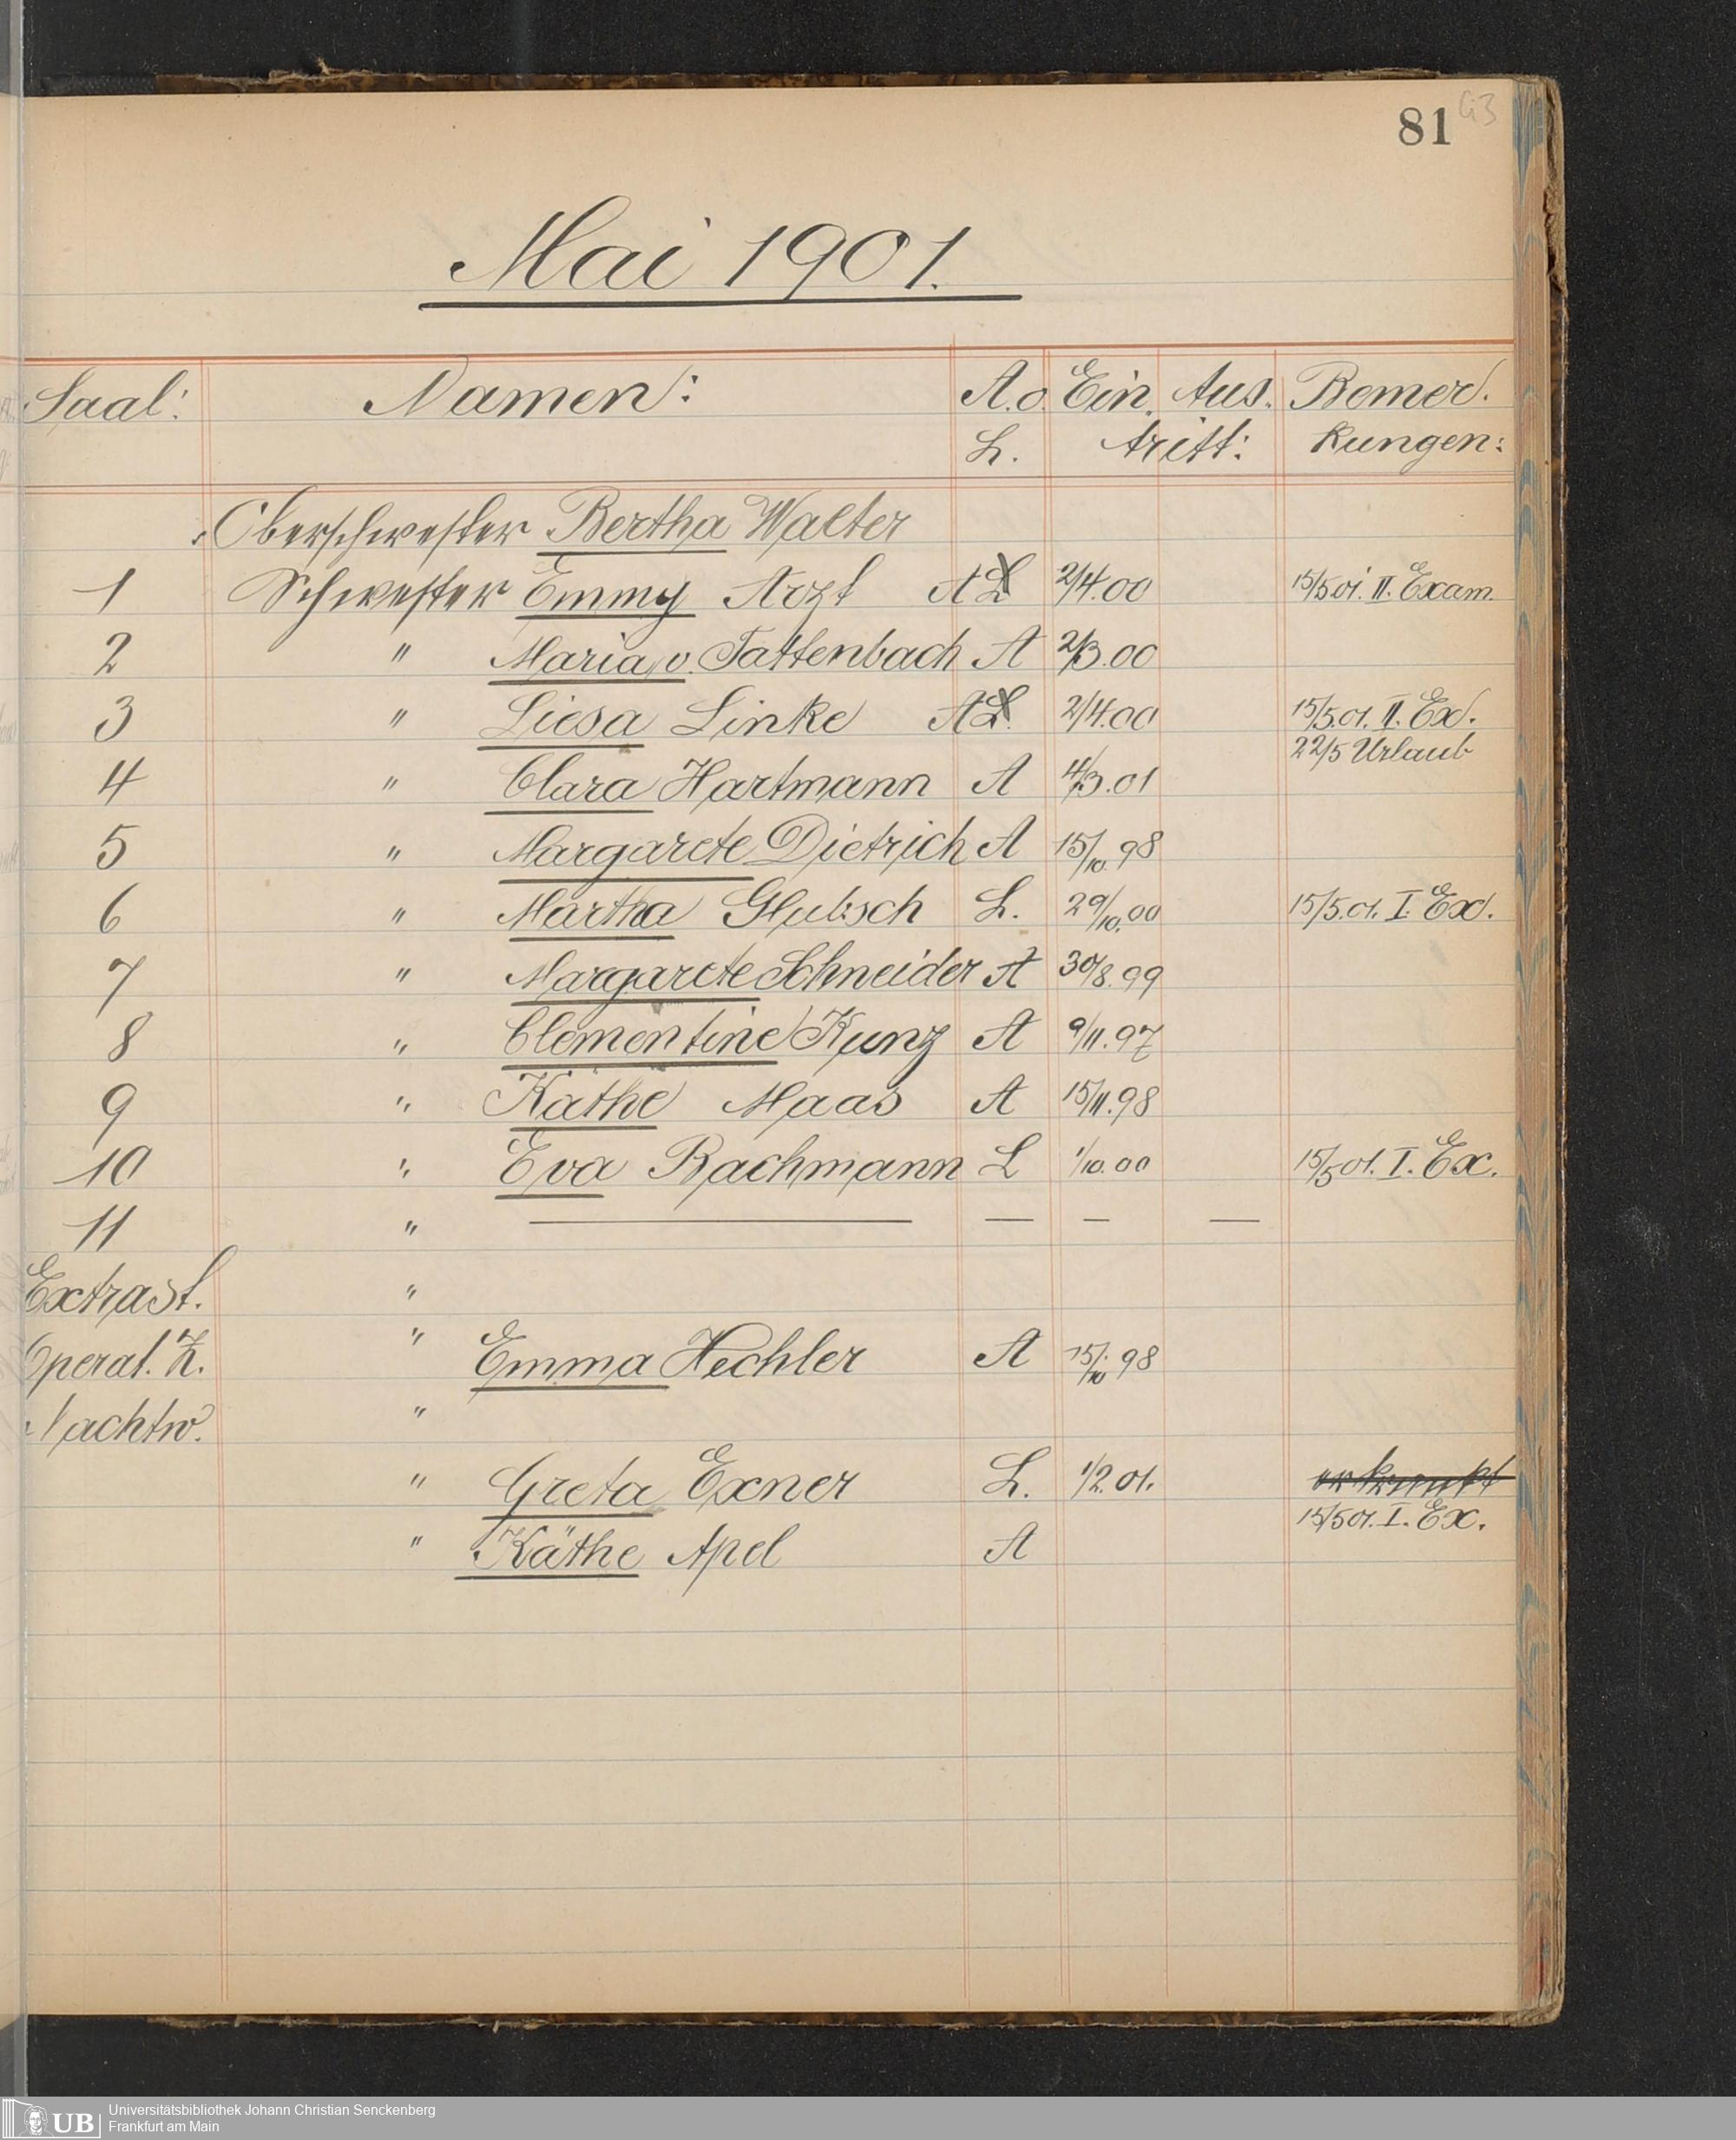 81 63
Mai 1901.
Saal: Namen: A.o. Ein. Aus. Bemer.
L. tritt: kungen:
Oberschwester Bertha Walter
1 Schwester Emmy Arzt A L 2/4.00 15/5.01. II. Exam.
2 " Maria v. Tattenbach A 2/3.00
3 " Liesa Linke A L 2/4.00 15/5.01. II. Ex.
22/5 Urlaub
4 " Clara Hartmann A 4/3.01
5 " Margarete Dietrich A 15/10.98
6 " Martha Glubsch L. 29/10.00 15/5.01. I. Ex.
7 " Margarete Schneider A 30/8.99
8 " Clementine Kunz A 9/11.97
9 " Käthe Maas A 15/11.98
10 " Eva Bachmann L 1/10.00 15/5 01. I. Ex.
11 " — — — —
Extrast. "
Operat. Z. " Emma Hechler A 15/10 98
Nachtw. "
" Greta Exner L. 1/2.01. erkrankt
15/5 01. I. Ex.
" Käthe Apel A
UB Universitätsbibliothek Johann Christian Senckenberg
Frankfurt am Main